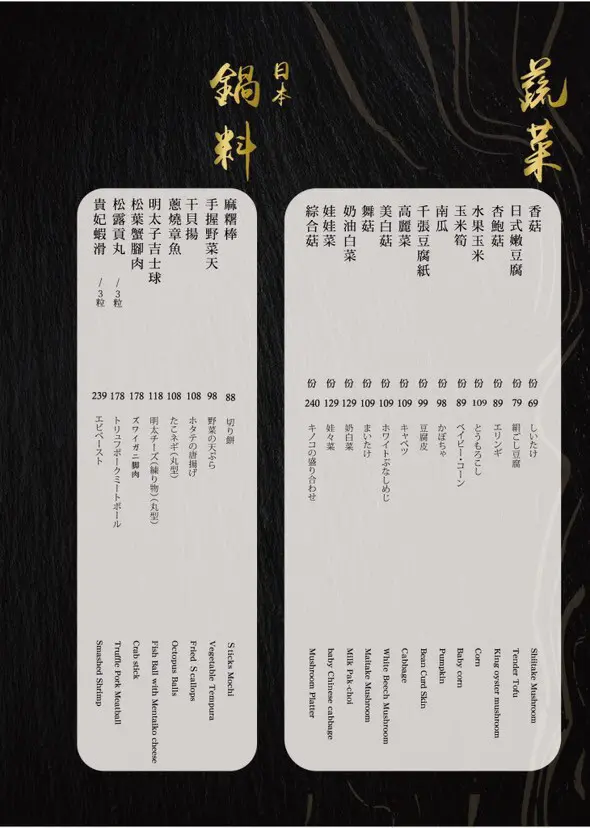 蔬菜
香菇 份 69 しいたけ Shiitake Mushroom
日式嫩豆腐 份 79 絹ごし豆腐 Tender Tofu
杏鮑菇 份 89 エリンギ King oyster mushroom
水果玉米 份 109 とうもろこし Corn
玉米筍 份 89 ベイビー・コーン Baby corn
南瓜 份 98 かぼちゃ Pumpkin
千張豆腐紙 份 99 豆腐皮 Bean Curd Skin
高麗菜 份 109 キャベツ Cabbage
美白菇 份 109 ホワイトぶなしめじ White Beech Mushroom
舞菇 份 109 まいたけ Maitake Mushroom
奶油白菜 份 129 奶白菜 Milk Pak-choi
娃娃菜 份 129 娃々菜 baby Chinese cabbage
綜合菇 份 240 キノコの盛り合わせ Mushroom Platter
日本
鍋料
麻糬棒 88 切り餅 Sticks Mochi
手握野菜天 98 野菜の天ぷら Vegetable Tempura
干貝揚 108 ホタテの唐揚げ Fried Scallops
蔥燒章魚 108 たこネギ(丸型) Octopus Balls
明太子吉士球 118 明太チーズ(練り物)(丸型) Fish Ball with Mentaiko cheese
松葉蟹腳肉 178 ズワイガニ脚肉 Crab stick
松露貢丸 /3粒 178 トリュフポークミートボール Truffle Pork Meatball
貴妃蝦滑 /3粒 239 エビペースト Smashed Shrimp